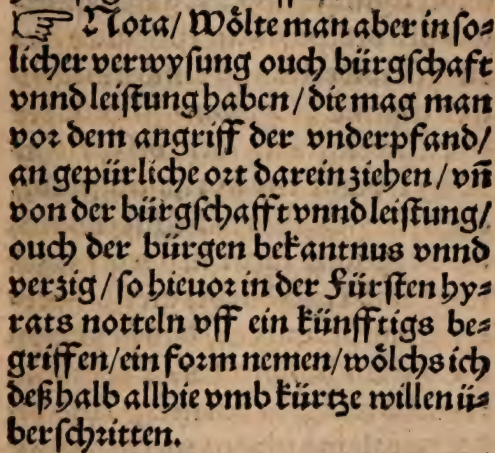 ☞ Nota/ Woͤlte man aber in so⸗
licher verwysung ouch bürgschafft
vnnd leistung haben/ die mag man
vor dem angriff der vnderpfand/
an gepürliche ort darein ziehen/ vn̄
von der bürgschafft vnnd leistung/
ouch der bürgen bekantnus vnnd
verzig/ so hieuor in der Fürsten hy⸗
rats notteln vff ein künfftigs be⸗
griffen/ ein form nemen/ woͤlchs ich
deßhalb allhie vmb kürtze willen ü⸗
berschritten.